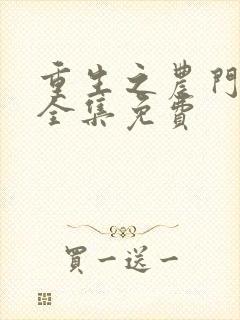 重生之農門
全集免費
買一送一